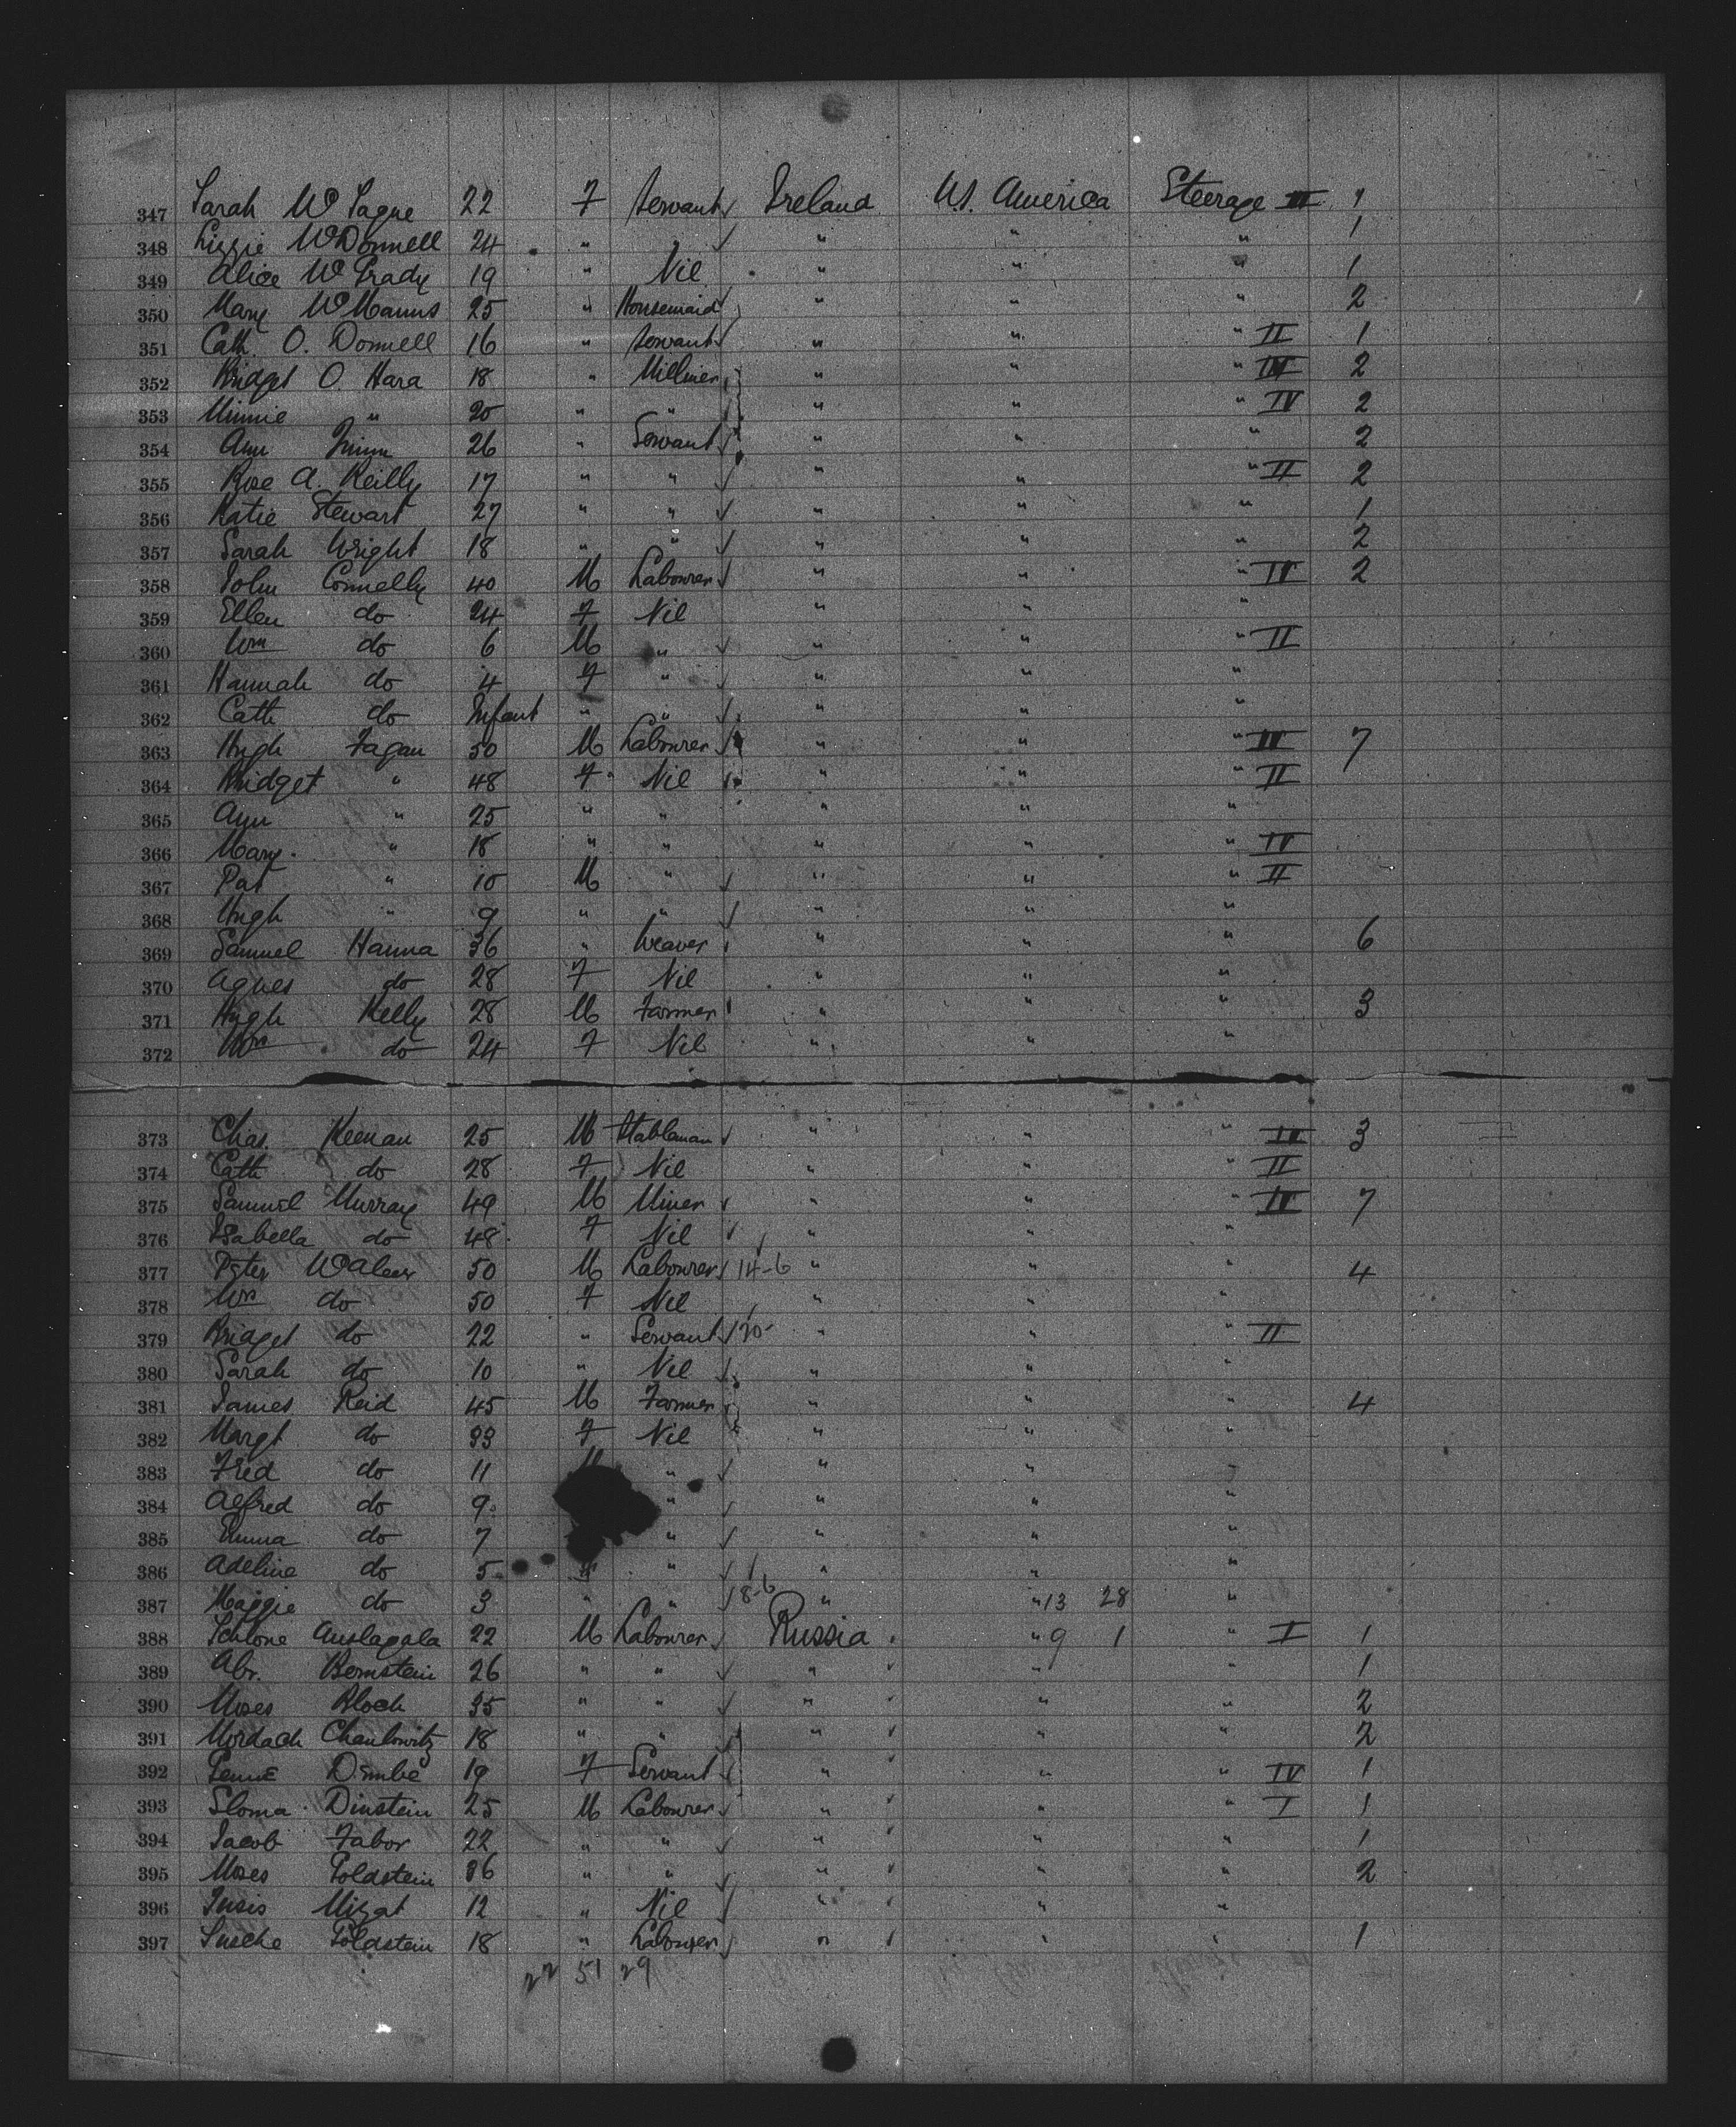 347 Sarah McTague 22 F Servant Ireland U.S. America Steerage III 1
348 Lizzie McDonnell 24 " " " " " 1
349 Alice McGrady 19 " Nil " " " 1
350 Mary McManus 25 " Housemaid " " " 2
351 Cath. O. Donnell 16 " Servant " " " II 1
352 Bridget O. Hara 18 " Milliner " " " IV 2
353 Minnie " 20 " " " " " IV 2
354 Ann 26 " Servant " " " 2
355 Rose A. Reilly 17 " " " " " II 2
356 Katie Stewart 27 " " " " " 1
357 Sarah Wright 18 " " " " " 2
358 John Connelly 40 M Labourer " " " IV 2
359 Ellen do 24 F Nil " " "
360 Wm do 6 M " " " " II
361 Hannah do 4 F " " " "
362 Cath do Infant " " " " "
363 Hugh Fagan 50 M Labourer " " " IV 7
364 Bridget " 48 F Nil " " " II
365 Ann " 25 " " " " "
366 Mary " 18 " " " " " IV
367 Pat " 10 M " " " " II
368 Hugh " 9 " " " " "
369 Samuel Hanna 36 " Weaver " " " 6
370 Agnes do 28 F Nil " " "
371 Hugh Kelly 28 M Farmer " " " 3
372 Mrs do 24 F Nil " " "
373 Chas. Keenan 25 M Stableman " " " IV 3
374 Cath do 28 F Nil " " " II
375 Samuel Murray 49 M Miner " " " IV 7
376 Isabella do 48 F Nil " " "
377 Peter McAleer 50 M Labourer 14-6 " " " 4
378 Mrs do 50 F Nil " " "
379 Bridget do 22 " Servant " " " II
380 Sarah do 10 " Nil " " "
381 James Reid 45 M Farmer " " " 4
382 Margt do 33 F Nil " " "
383 Fred do 11 " " " "
384 Alfred do 9 " " " "
385 Emma do 7 " " " "
386 Adeline do 5 " " " " "
387 Maggie do 3 " " 8-6 " " 13 28 "
388 Schlone Auslagala 22 M Labourer Russia " 9 1 " I 1
389 Abr. Bernstein 26 " " " " " 1
390 Moses Bloch 35 " " " " " 2
391 Mordach Chaulowitz 18 " " " " " 2
392 Dembe 19 F Servant " " " IV 1
393 Sloma Dinstein 25 M Labourer " " " I 1
394 Jacob Fabor 22 " " " " " 1
395 Moses Goldstein 36 " " " " " 2
396 Mizat 12 " Nil " " "
397 Goldstein 18 " Labourer " " " 1
22 51 29